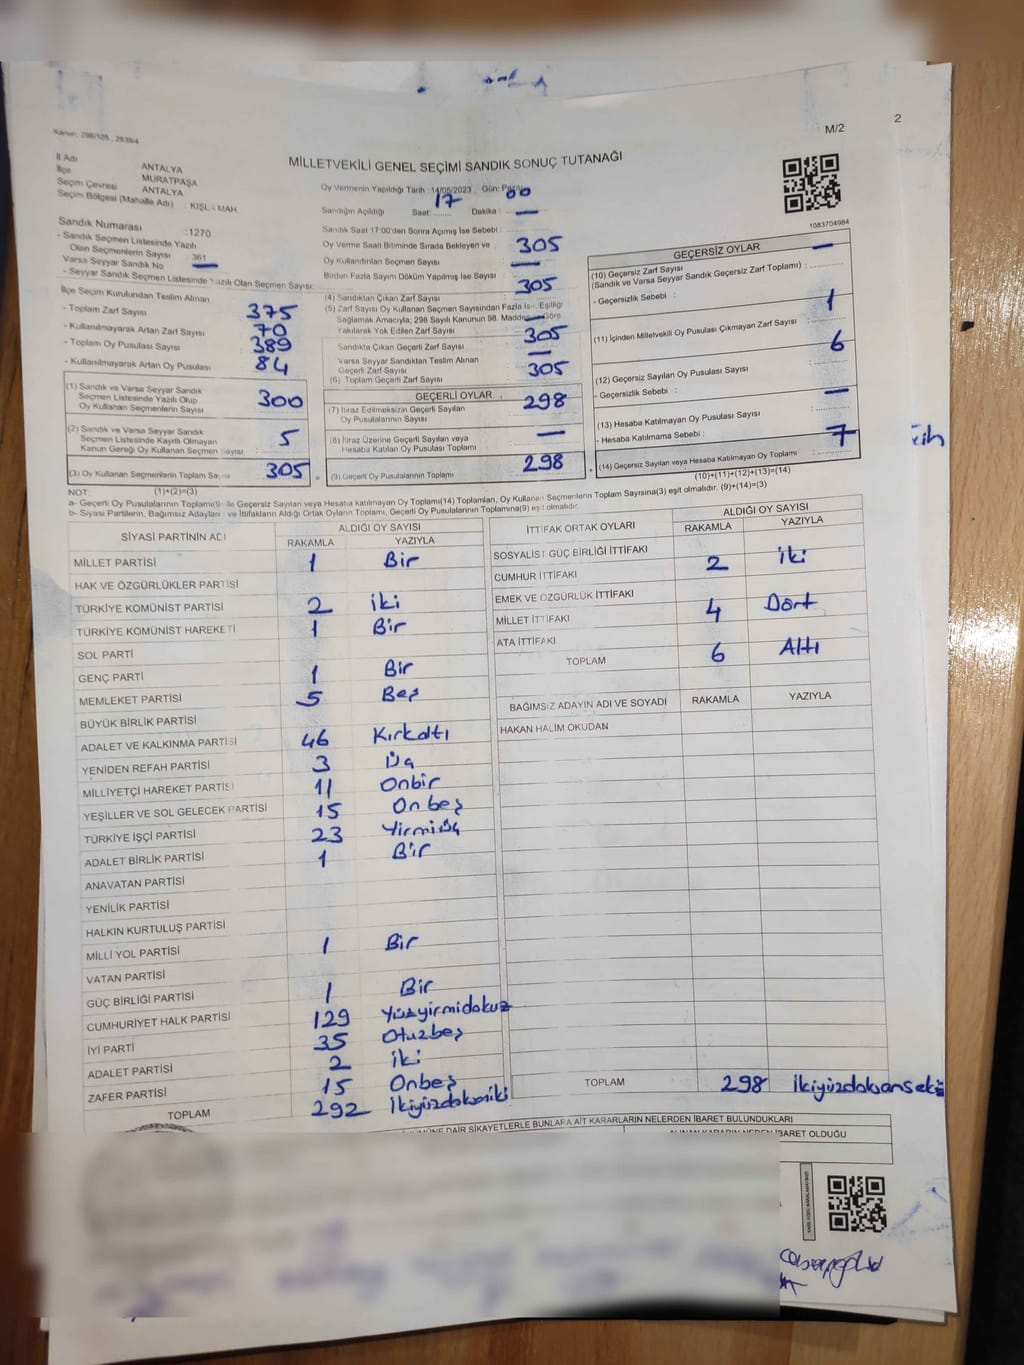 2
M/2
Kanun: 298/105 , 2839/4
MİLLETVEKİLİ GENEL SEÇİMİ SANDIK SONUÇ TUTANAĞI
İl Adı ANTALYA
İlçe MURATPAŞA
Seçim Çevresi ANTALYA
Seçim Bölgesi (Mahalle Adı) : KIŞLA MAH.
Sandık Numarası :1270
- Sandık Seçmen Listesinde Yazılı
Olan Seçmenlerin Sayısı 361
Varsa Seyyar Sandık No —
- Seyyar Sandık Seçmen Listesinde Yazılı Olan Seçmen Sayısı
İlçe Seçim Kurulundan Teslim Alınan
- Toplam Zarf Sayısı 375
- Kullanılmayarak Artan Zarf Sayısı 70
- Toplam Oy Pusulası Sayısı 389
- Kullanılmayarak Artan Oy Pusulası 84
(1) Sandık ve Varsa Seyyar Sandık
Seçmen Listesinde Yazılı Olup
Oy Kullanan Seçmenlerin Sayısı 300
(2) Sandık ve Varsa Seyyar Sandık
Seçmen Listesinde Kayıtlı Olmayan
Kanun Gereği Oy Kullanan Seçmen Sayısı 5
(3) Oy Kullanan Seçmenlerin Toplam Sayısı 305
(1)+(2)=(3)
Oy Vermenin Yapıldığı Tarih :14/05/2023 Gün: Pazar
Sandığın Açıldığı Saat: 17 Dakika : 00
Sandık Saat 17:00'den Sonra Açımış İse Sebebi : —
Oy Verme Saati Bitiminde Sırada Bekleyen ve
Oy Kullandırılan Seçmen Sayısı 305
Birden Fazla Sayım Döküm Yapılmış İse Sayısı —
(4) Sandıktan Çıkan Zarf Sayısı 305
(5) Zarf Sayısı Oy Kullanan Seçmen Sayısından Fazla İse, Eşitliği
Sağlamak Amacıyla; 298 Sayılı Kanunun 98. Maddesine Göre
Yakılarak Yok Edilen Zarf Sayısı —
Sandıkta Çıkan Geçerli Zarf Sayısı 305
Varsa Seyyar Sandıktan Teslim Alınan
Geçerli Zarf Sayısı —
(6) Toplam Geçerli Zarf Sayısı 305
GEÇERLİ OYLAR
(7) İtiraz Edilmeksizin Geçerli Sayılan
Oy Pusulalarının Sayısı 298
(8) İtiraz Üzerine Geçerli Sayılan veya
Hesaba Katılan Oy Pusulası Toplamı —
(9) Geçerli Oy Pusulalarının Toplamı 298
1083704984
GEÇERSİZ OYLAR
(10) Geçersiz Zarf Sayısı —
(Sandık ve Varsa Seyyar Sandık Geçersiz Zarf Toplamı) :
- Geçersizlik Sebebi :
(11) İçinden Milletvekili Oy Pusulası Çıkmayan Zarf Sayısı 1
(12) Geçersiz Sayılan Oy Pusulası Sayısı 6
- Geçersizlik Sebebi :
(13) Hesaba Katılmayan Oy Pusulası Sayısı —
- Hesaba Katılmama Sebebi :
(14) Geçersiz Sayılan veya Hesaba Katılmayan Oy Toplamı 7
(10)+(11)+(12)+(13)=(14)
NOT:
a- Geçerli Oy Pusulalarının Toplamı(9) ile Geçersiz Sayılan veya Hesaba katılmayan Oy Toplamı(14) Toplamları, Oy Kullanan Seçmenlerin Toplam Sayısına(3) eşit olmalıdır. (9)+(14)=(3)
b- Siyasi Partilerin, Bağımsız Adayların ve İttifakların Aldığı Ortak Oyların Toplamı, Geçerli Oy Pusulalarının Toplamına(9) eşit olmalıdır.
SİYASİ PARTİNİN ADI ALDIĞI OY SAYISI
RAKAMLA YAZIYLA
MİLLET PARTİSİ 1 Bir
HAK VE ÖZGÜRLÜKLER PARTİSİ
TÜRKİYE KOMÜNİST PARTİSİ 2 iki
TÜRKİYE KOMÜNİST HAREKETİ 1 Bir
SOL PARTİ
GENÇ PARTİ 1 Bir
MEMLEKET PARTİSİ 5 Beş
BÜYÜK BİRLİK PARTİSİ
ADALET VE KALKINMA PARTİSİ 46 Kırkaltı
YENİDEN REFAH PARTİSİ 3 Üç
MİLLİYETÇİ HAREKET PARTİSİ 11 Onbir
YEŞİLLER VE SOL GELECEK PARTİSİ 15 Onbeş
TÜRKİYE İŞÇİ PARTİSİ 23 Yirmiüç
ADALET BİRLİK PARTİSİ 1 Bir
ANAVATAN PARTİSİ
YENİLİK PARTİSİ
HALKIN KURTULUŞ PARTİSİ
MİLLİ YOL PARTİSİ 1 Bir
VATAN PARTİSİ
GÜÇ BİRLİĞİ PARTİSİ 1 Bir
CUMHURİYET HALK PARTİSİ 129 Yüzyirmidokuz
İYİ PARTİ 35 Otuzbeş
ADALET PARTİSİ 2 iki
ZAFER PARTİSİ 15 Onbeş
TOPLAM 292 İkiyüzdoksaniki
İTTİFAK ORTAK OYLARI ALDIĞI OY SAYISI
RAKAMLA YAZIYLA
SOSYALİST GÜÇ BİRLİĞİ İTTİFAKI
CUMHUR İTTİFAKI 2 iki
EMEK VE ÖZGÜRLÜK İTTİFAKI
MİLLET İTTİFAKI 4 Dört
ATA İTTİFAKI
TOPLAM 6 Altı
BAĞIMSIZ ADAYIN ADI VE SOYADI RAKAMLA YAZIYLA
HAKAN HALİM OKUDAN
TOPLAM 298 İkiyüzdoksanseki
DAİR ŞİKAYETLERLE BUNLARA AİT KARARLARIN NELERDEN İBARET BULUNDUKLARI
ALINAN KARARIN NEDEN İBARET OLDUĞU